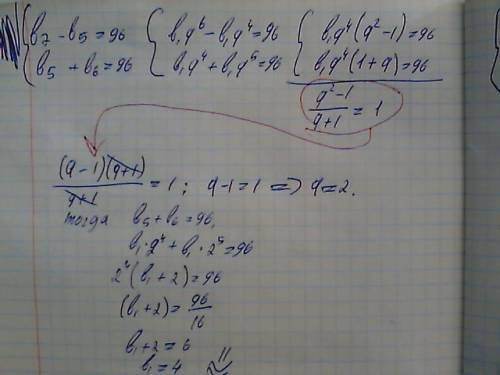 b₇ - b₅ = 96   b₁q⁶ - b₁q⁴ = 96   b₁q⁴(q² - 1) = 96
b₅ + b₆ = 96   b₁q⁴ + b₁q⁵ = 96   b₁q⁴(1 + q) = 96
(q² - 1)/(q + 1) = 1
(q - 1)(q + 1)/(q + 1) = 1; q - 1 = 1 => q = 2.
тогда b₅ + b₆ = 96,
b₁ · 2⁴ + b₁ · 2⁵ = 96
2⁴(b₁ + 2) = 96
(b₁ + 2) = 96/16
b₁ + 2 = 6
b₁ = 4